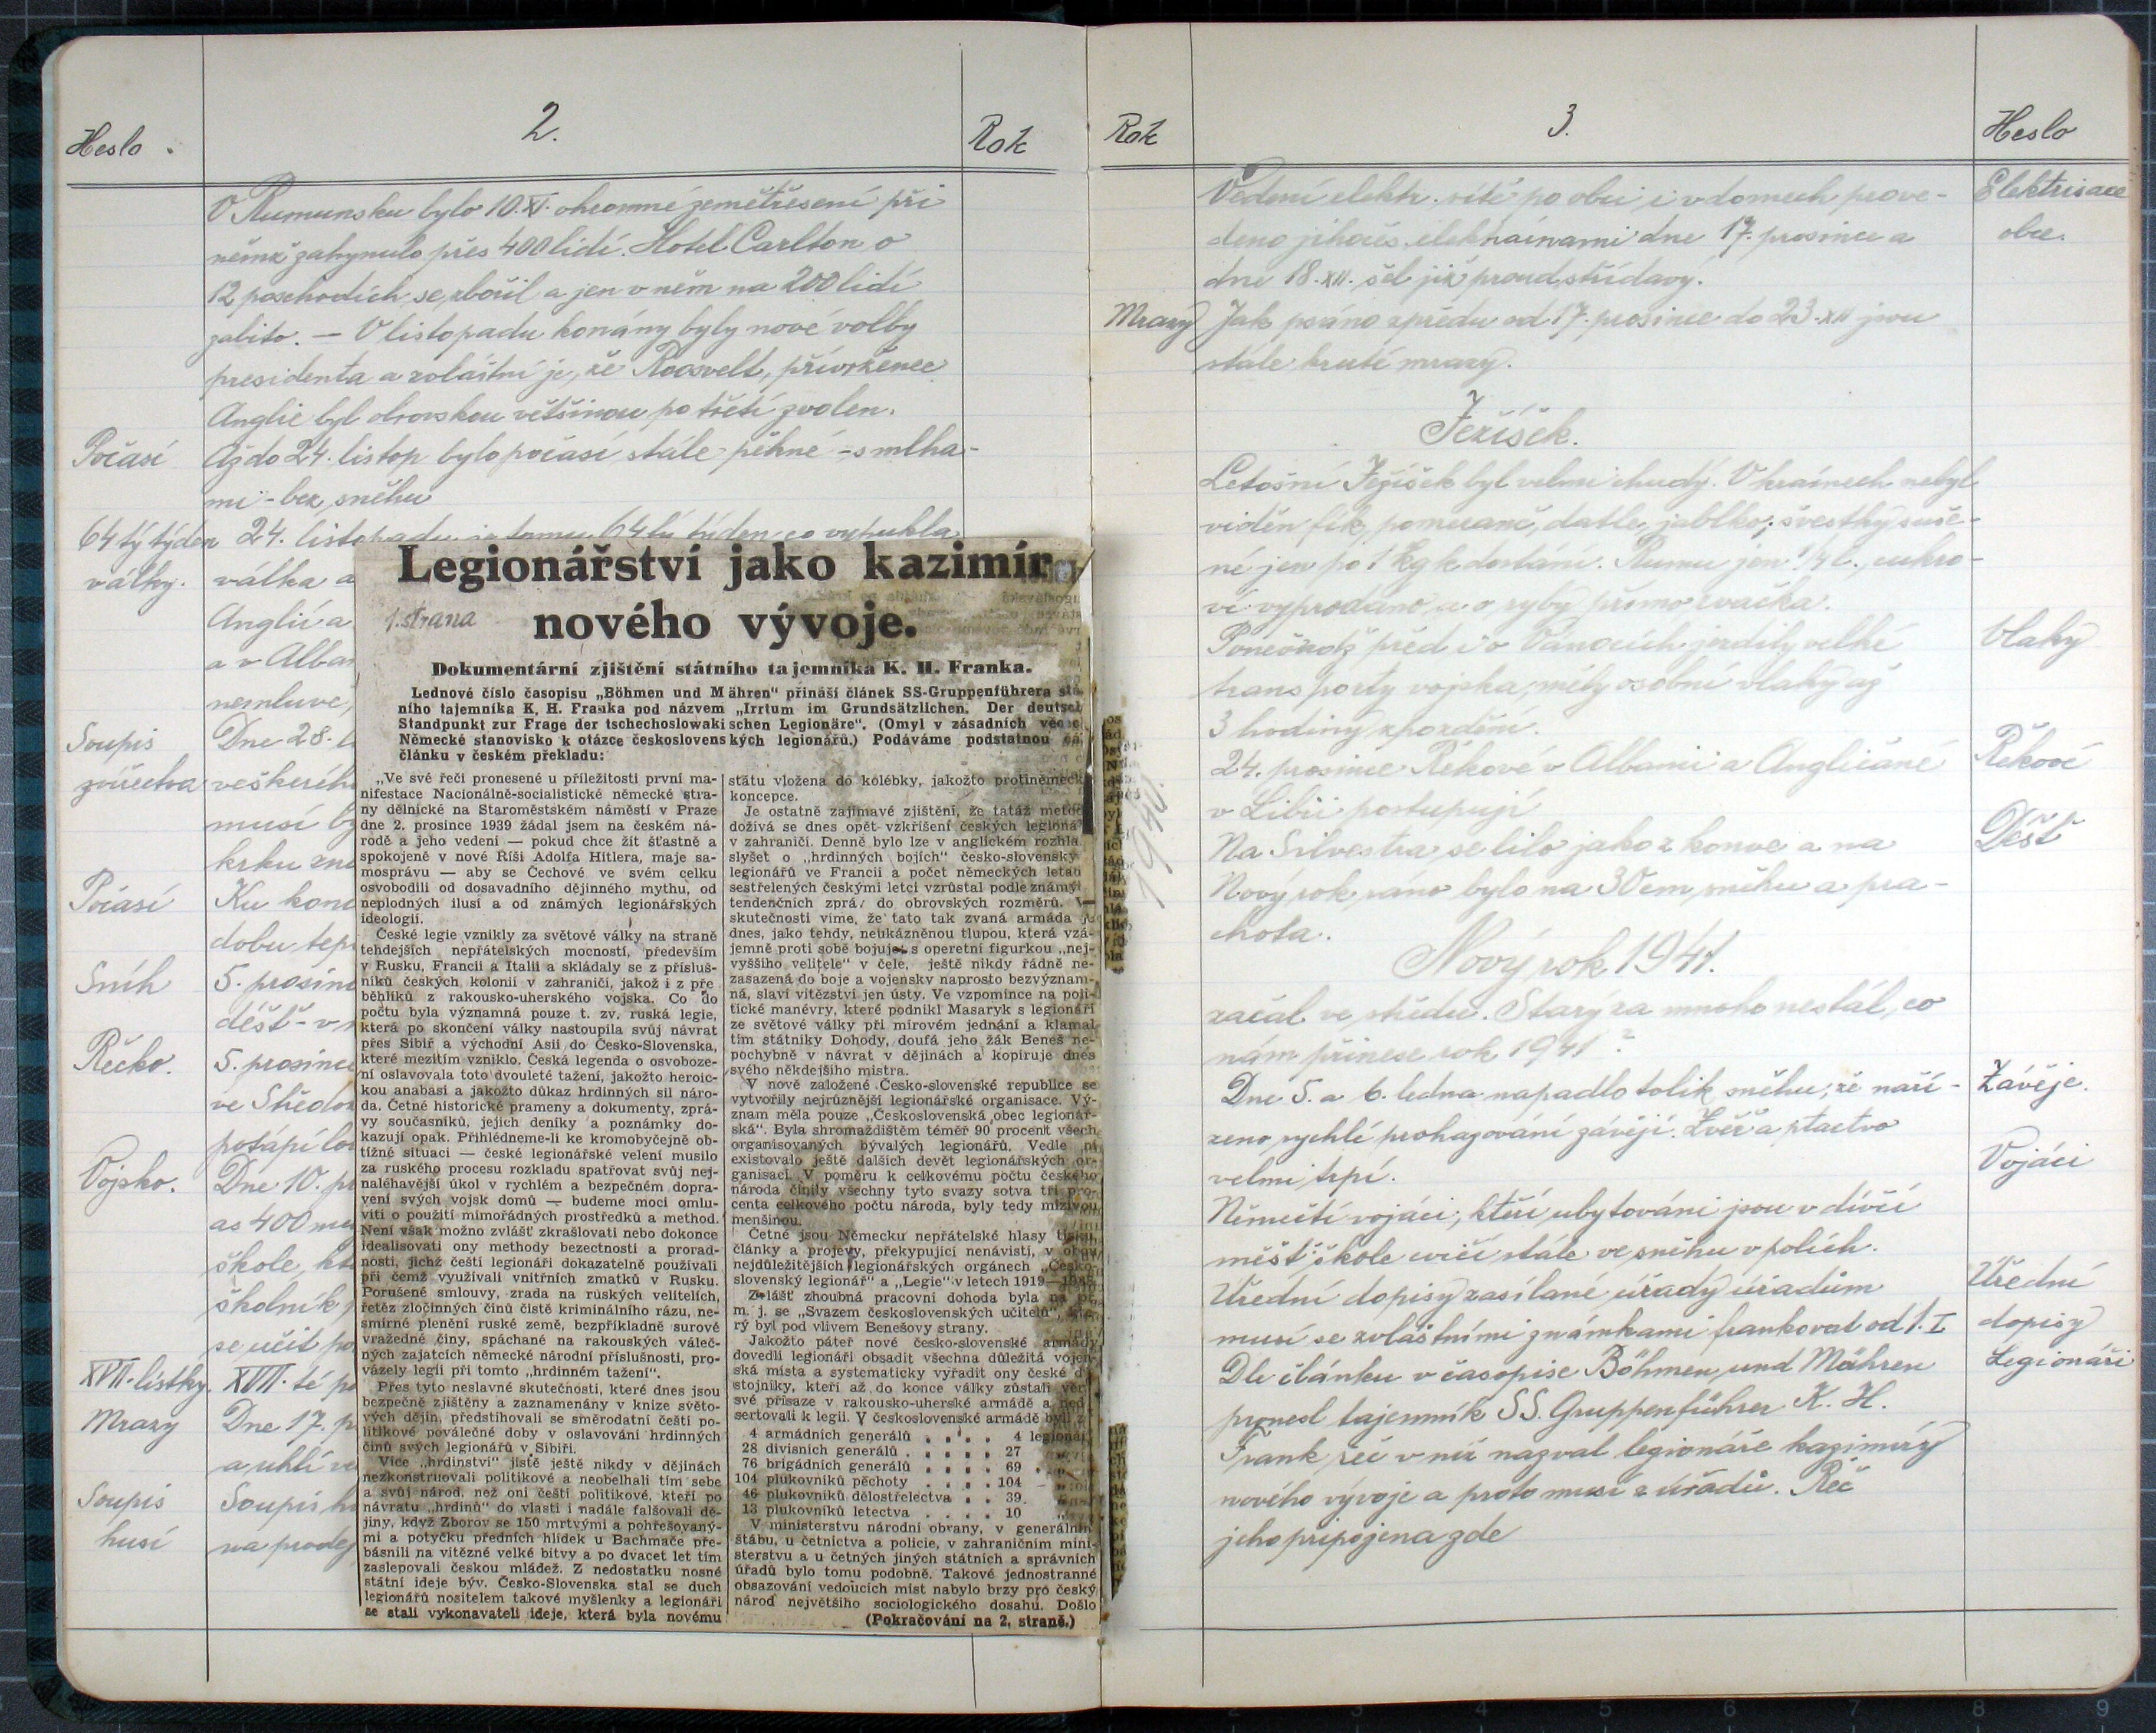 Heslo.
2.
Rok
V Rumunsku bylo 10.XI. ohromné zemětřesení při
němž zahynulo přes 400 lidí. Hotel Carlton o
12 poschodích se zbořil a jen v něm na 200 lidí
zabito. — V listopadu konány byly nové volby
presidenta a zvláštní je, že Roosvelt, přívrženec
Anglie byl obrovskou většinou po třetí zvolen.
Počasí
Až do 24. listop bylo počasí stále pěkné - s mlha-
mi - bez sněhu
64 tý týden
války.
24. listopadu je tomu 64 tý týden co vypukla
válka a
Anglií a
a v Alba
nemluvě,
Soupis
zvířectva
Dne 28.
veškeréh
musí
krku
Počasí
Ku konc
dobu tep
Sníh
5. prosin
déšť - v
Řecko.
5. prosince
ve Středo
potápí lo
Vojsko.
Dne 10. pr
as 400 mu
škole, kt
školník
se učit po
XVII. lístky.
XVII. té
Mrazy
Dne 17. p
a uhlí
Soupis
husí
Soupis h
na prodej
Legionářství jako kazimír
1. strana
nového vývoje.
Dokumentární zjištění státního tajemníka K. H. Franka.
Lednové číslo časopisu „Böhmen und Mähren" přináší článek SS-Gruppenführera stá-
ního tajemníka K. H. Franka pod názvem „Irrtum im Grundsätzlichen. Der deutsche
Standpunkt zur Frage der tschechoslowakischen Legionäre". (Omyl v zásadních věcech
Německé stanovisko k otázce československých legionářů.) Podáváme podstatnou čá
článku v českém překladu:
„Ve své řeči pronesené u příležitosti první ma-
nifestace Nacionálně-socialistické německé stra-
ny dělnické na Staroměstském náměstí v Praze
dne 2. prosince 1939 žádal jsem na českém ná-
rodě a jeho vedení — pokud chce žít šťastně a
spokojeně v nové Říši Adolfa Hitlera, maje sa-
mosprávu — aby se Čechové ve svém celku
osvobodili od dosavadního dějinného mythu, od
neplodných ilusí a od známých legionářských
ideologií.
České legie vznikly za světové války na straně
tehdejších nepřátelských mocností, především
v Rusku, Francii a Italii a skládaly se z přísluš-
níků českých kolonií v zahraničí, jakož i z pře
běhlíků z rakousko-uherského vojska. Co do
počtu byla významná pouze t. zv. ruská legie,
která po skončení války nastoupila svůj návrat
přes Sibiř a východní Asii do Česko-Slovenska,
které mezitím vzniklo. Česká legenda o osvoboze-
ní oslavovala toto dvouleté tažení, jakožto heroic-
kou anabasi a jakožto důkaz hrdinných sil náro-
da. Četné historické prameny a dokumenty, zprá-
vy současníků, jejich deníky a poznámky do-
kazují opak. Přihlédneme-li ke kromobyčejně ob-
tížné situaci — české legionářské velení musilo
za ruského procesu rozkladu spatřovat svůj nej-
naléhavější úkol v rychlém a bezpečném dopra-
vení svých vojsk domů — budeme moci omlu-
viti o použití mimořádných prostředků a method.
Není však možno zvlášť zkrašlovati nebo dokonce
idealisovati ony methody bezectnosti a prorad-
nosti, jichž čeští legionáři dokazatelně používali
při čemž využívali vnitřních zmatků v Rusku.
Porušené smlouvy, zrada na ruských velitelích,
řetěz zločinných činů čistě kriminálního rázu, ne-
smírné plenění ruské země, bezpříkladně surově
vražedné činy, spáchané na rakouských váleč-
ných zajatcích německé národní příslušnosti, pro-
vázely legii při tomto „hrdinném tažení".
Přes tyto neslavné skutečnosti, které dnes jsou
bezpečně zjištěny a zaznamenány v knize světo-
vých dějin, předstihovali se směrodatní čeští po-
litikové poválečné doby v oslavování hrdinných
činů svých legionářů v Sibiři.
Více „hrdinství" jistě ještě nikdy v dějinách
nezkonstruovali politikové a neobelhali tím sebe
a svůj národ, než oni čeští politikové, kteří po
návratu „hrdinů" do vlasti i nadále falšovali dě-
jiny, když Zborov se 150 mrtvými a pohřešovaný-
mi a potyčku předních hlídek u Bachmače pře-
básnili na vítězné velké bitvy a po dvacet let tím
zaslepovali českou mládež. Z nedostatku nosné
státní ideje býv. Česko-Slovenska stal se duch
legionářů nositelem takové myšlenky a legionáři
se stali vykonavateli ideje, která byla novému
státu vložena do kolébky, jakožto protiněmecká
koncepce.
Je ostatně zajímavé zjištění, že tatáž metod
dožívá se dnes opět vzkříšení českých legioná
v zahraničí. Denně bylo lze v anglickém rozhla
slyšet o „hrdinných bojích" česko-slovenský
legionářů ve Francii a počet německých letad
sestřelených českými letci vzrůstal podle známý
tendenčních zpráv do obrovských rozměrů. V
skutečnosti víme, že tato tak zvaná armáda je
dnes, jako tehdy, neukázněnou tlupou, která vzá-
jemně proti sobě bojujet s operetní figurkou „nej-
vyššího velitele" v čele, ještě nikdy řádně ne-
zasazená do boje a vojensky naprosto bezvýznam-
ná, slaví vítězství jen ústy. Ve vzpomínce na poli-
tické manévry, které podnikl Masaryk s legionáři
ze světové války při mírovém jednání a klamal
tím státníky Dohody, doufá jeho žák Beneš ne-
pochybně v návrat v dějinách a kopíruje dnes
svého někdejšího mistra.
V nově založené Česko-slovenské republice se
vytvořily nejrůznější legionářské organisace. Vý-
znam měla pouze „Československá obec legionář-
ská". Byla shromaždištěm téměř 90 procent všech
organisovaných bývalých legionářů. Vedle ní
existovalo ještě dalších devět legionářských or-
ganisací. V poměru k celkovému počtu českého
národa činily všechny tyto svazy sotva tři pro-
centa celkového počtu národa, byly tedy mizivou
menšinou.
Četné jsou Německu nepřátelské hlasy tisku,
články a projevy, překypující nenávistí, v obou
nejdůležitějších legionářských orgánech „Česko-
slovenský legionář" a „Legie" v letech 1919—1938.
Zvlášť zhoubná pracovní dohoda byla na př.
m. j. se „Svazem československých učitelů", kte-
rý byl pod vlivem Benešovy strany.
Jakožto páteř nové česko-slovenské armády
dovedli legionáři obsadit všechna důležitá vojen-
ská místa a systematicky vyřadit ony české dů-
stojníky, kteří až do konce války zůstali věr
své přísaze v rakousko-uherské armádě a ned
sertovali k legii. V československé armádě byli z
4 armádních generálů . . . . . 4 legionáři
28 divisních generálů . . . . . 27
76 brigádních generálů . . . . 69
104 plukovníků pěchoty . . . . 104
46 plukovníků dělostřelectva . . 39
13 plukovníků letectva . . . . 10
V ministerstvu národní obrany, v generálním
štábu, u četnictva a policie, v zahraničním mini-
sterstvu a u četných jiných státních a správních
úřadů bylo tomu podobně. Takové jednostranné
obsazování vedoucích míst nabylo brzy pro český
národ největšího sociologického dosahu. Došlo
(Pokračování na 2. straně.)
Rok
3.
Heslo
1940.
Vedení elektr. sítě po obci i v domech prove-
deno jihočes. elektrárnami dne 17. prosince a
dne 18. XII. šel již proud střídavý.
Elektrisace
obce.
Mrazy
Jak psáno zpředu od 17. prosince do 23. XII jsou
stále kruté mrazy.
Ježíšek.
Letošní Ježíšek byl velmi chudý. V krámech nebyl
viděn fík, pomeranč, datle, jablko; švestky suše-
né jen po 1 kg k dostání. Rumu jen 1/4 l., cukro-
ví vyprodáno a o ryby přímo rvačka.
Poněvadž před i o Vánocích jezdily velké
transporty vojska, měly osobní vlaky až
3 hodiny zpoždění.
Vlaky
24. prosince Řekové v Albanii a Angličané
v Libii postupují
Řekové
Na Silvestra se lilo jako z konve a na
Nový rok ráno bylo na 30 cm sněhu a pra-
chota.
Déšť
Nový rok 1941.
začal ve středu. Starý za mnoho nestál, co
nám přinese rok 1941?
Dne 5. a 6. ledna napadlo tolik sněhu, že naří-
zeno rychlé prohazování závějí. Zvěř a ptactvo
velmi trpí.
Závěje.
Němečtí vojáci, kteří ubytováni jsou v dívčí
měšť. škole cvičí stále ve sněhu v polích.
Vojáci
Úřední dopisy zasílané úřady úřadům
musí se zvláštními známkami frankovat od 1. I.
Úřední
dopisy
Dle článku v časopise Böhmen und Mähren
pronesl tajemník SS. Gruppenführer K. H.
Frank řeč v níž nazval legionáře kazimíry
nového vývoje a proto musí z úřadů. Řeč
jeho připojena zde
Legionáři